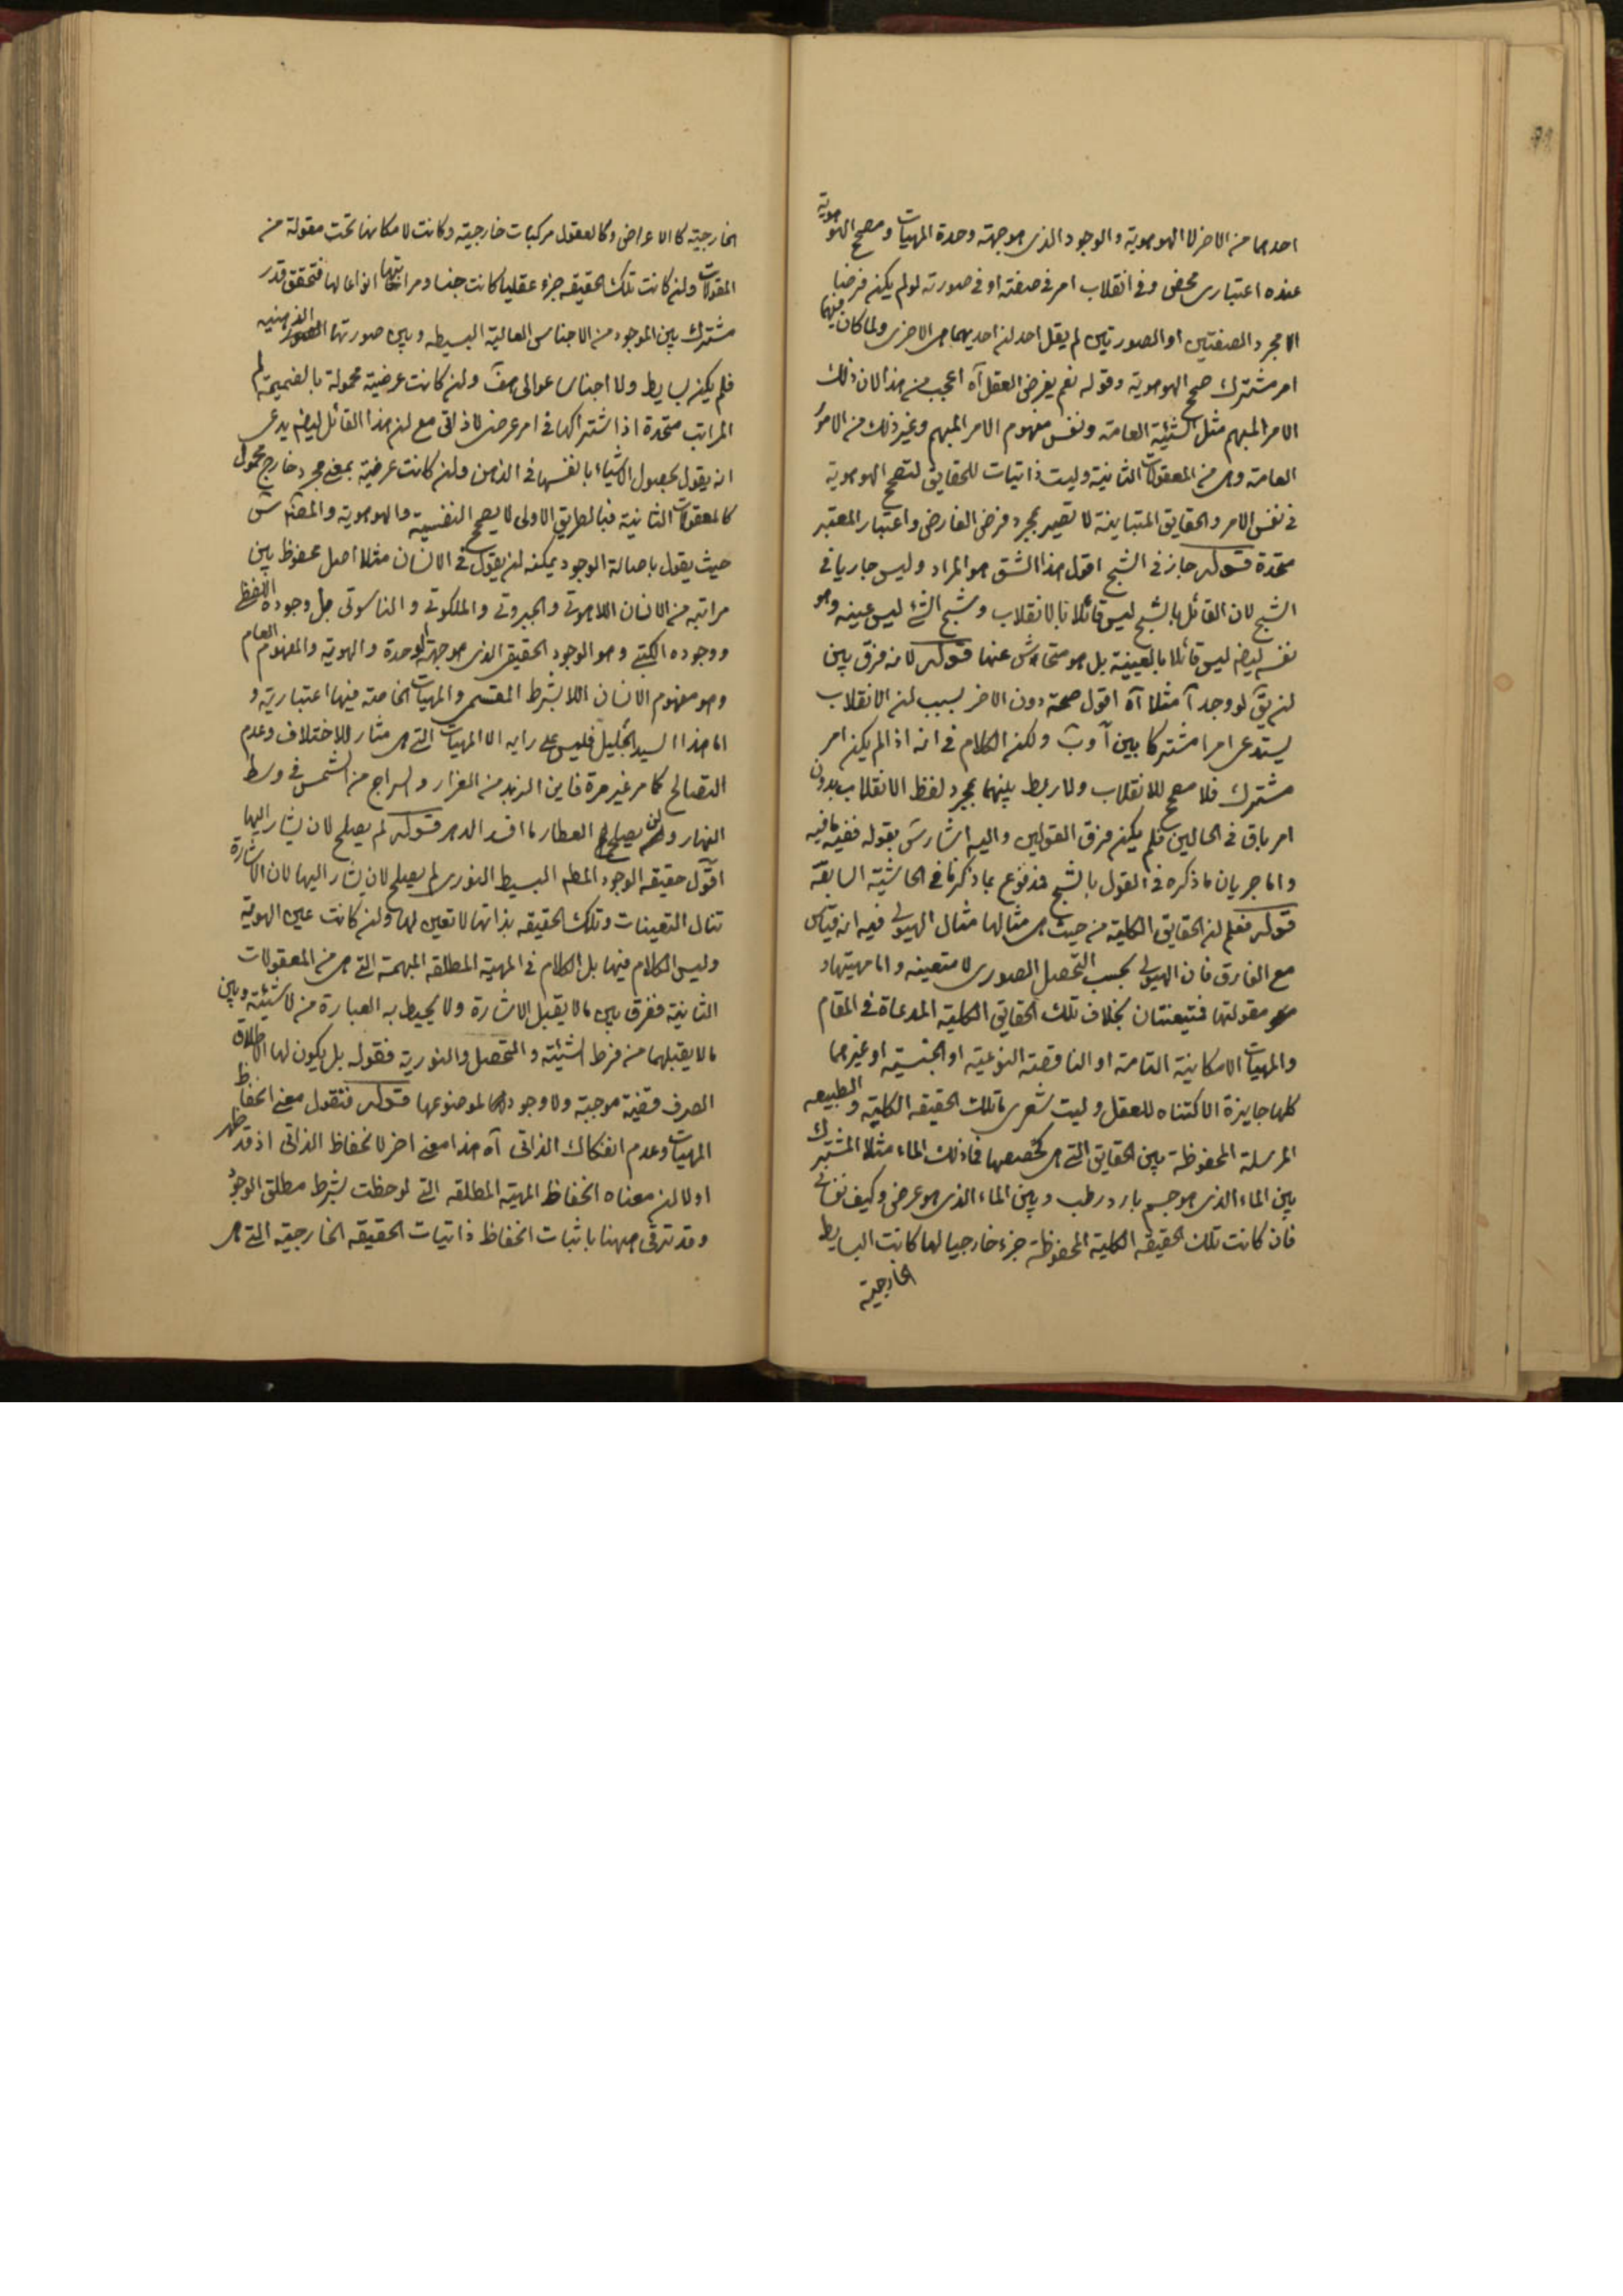 احدهما من الاخر لا الهوهوية والوجود الذى هو جهة وحدة المهيات ومصحح الهوهوية
عنده اعتبارى محض وفى انقلاب امر فى صفته او فى صورته لو لم يكن فرضنا
الا مجرد الصفتين او الصورتين لم يقل احد ان احديهما هى الاخرى ولما كان فيهما
امر مشترك صح الهوهوية وقوله نعم يفرض العقل آه اعجب من هذا لان ذلك
الامر المبهم مثل الشيئية العامة ونفس مفهوم الامر المبهم وغير ذلك من الامور
العامة وهى من المعقولات الثانية وليست ذاتيات للحقايق لتصحح الهوهوية
فى نفس الامر والحقايق المتباينة لا تصير بمجرد فرض الفارض واعتبار المعتبر
متحدة قوله جاز فى الشبح اقول هذا الشق هو المراد وليس جاريا فى
الشبح لان القائل بالشبح ليس قائلا بالانقلاب وشبح الشئ ليس عينه وهو
نفسه ايضا ليس قائلا بالعينية بل هو متحاش عنها قوله لانه فرق بين
ان يق لو وجد آ مثلا آه اقول صحة دون الاخر بسبب ان الانقلاب
يستدعى امرا مشتركا بين آ وب ولكن الكلام فى انه اذا لم يكن امر
مشترك فلا مصحح للانقلاب ولا ربط بينهما بمجرد لفظ الانقلاب بدون
امر باق فى الحالين فلم يكن فرق القولين واليه اشار س بقوله ففيه ما فيه
واما جريان ما ذكره فى القول بالشبح فمدفوع بما ذكرنا فى الحاشية السابقة
قوله فعلم ان الحقايق الكلية من حيث هى مثالها مثال الهيولى فيه انه قياس
مع الفارق فان الهيولى بحسب التحصل الصورى لا متعينة واما مهيتها و
مقولتها فتيعنتان بخلاف تلك الحقايق الكلية المدعاة فى المقام
والمهيات الامكانية التامة او الناقصة النوعية او الجنسية او غيرهما
كلها جايزة الاكتناه للعقل وليت شعرى ما تلك الحقيقة الكلية والطبيعة
المرسلة المحفوظة بين الحقايق التى هى تخصصها فما ذلك الماء مثلا المشترك
بين الماء الذى هو جسم بارد رطب وبين الماء الذى هو عرض وكيف نفسانى
فان كانت تلك الحقيقة الكلية المحفوظة جزء خارجيا لها كانت البسايط
الخارجية
الخارجية كالاعراض وكالعقول مركبات خارجية وكانت لامكانها تحت مقولة من
المقولات وان كانت تلك الحقيقة جزء عقليا كانت جنسا ومراتبها انواعا لها فتحقق قدر
مشترك بين الموجود من الاجناس العالية البسيطة وبين صورتها الذهنية
فلم يكن بسايط ولا اجناسا عوالى هف وان كانت عرضية محمولة بالضميمة لم
المراتب متحدة اذا اشتراكها فى امر عرضى لا ذاتى مع ان هذا القائل ايضا يدعى
انه يقول بحصول الاشياء بانفسها فى الذهن وان كانت عرضية بمعنى مجرد خارج محمول
كالمعقولات الثانية فبالطريق الاولى لا يصحح النفسية والهوهوية والمصنف س
حيث يقول باصالة الوجود يمكنه ان يقول فى الانسان مثلا اصل محفوظ بين
مراتبه من الانسان اللاهوتى والجبروتى والملكوتى والناسوتى بل وجوده اللفظى
ووجوده الكتبى وهو الوجود الحقيقى الذى هو جهة الوحدة والهوية والمفهوم العام
وهو مفهوم الانسان اللا بشرط المقسمى والمهيات الخاصة فيها اعتبارية و
اما هذا السيد الجليل فليس على رايه الا المهيات التى هى مثار للاختلاف وعدم
التصالح كما مر غير مرة فاين الزبد من الغزار والسراج من الشمس فى وسط
النهار ولن يصلح العطار ما افسد الدهر قوله لم يصلح لان يشار اليها
اقول حقيقة الوجود المطلق البسيط النورى لم يصلح لان يشار اليها لان الاشارة
تنال التعينات وتلك الحقيقة بذاتها لا تعين لها وان كانت عين الهوية
وليس الكلام فيها بل الكلام فى المهية المطلقة المبهمة التى هى من المعقولات
الثانية ففرق بين ما لا يقبل الاشارة ولا يحيط به العبارة من لا شيئية وبين
ما لا يقبلهما من فرط الشيئية والتحصل والنورية فقوله بل يكون لها الاطلاق
الصرف قضية موجبة ولا وجود لموضوعها قوله فنقول معنى انحفاظ
المهيات وعدم انفكاك الذاتى آه هذا معنى اخر لانحفاظ الذاتى اذ قد ظهر
اولا ان معناه انحفاظ المهية المطلقة التى لوحظت بشرط مطلق الوجود
وقد ترقى ههنا باثبات انحفاظ ذاتيات الحقيقة الخارجية التى هى